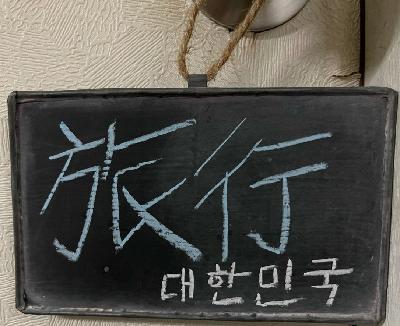 旅行
대한민국